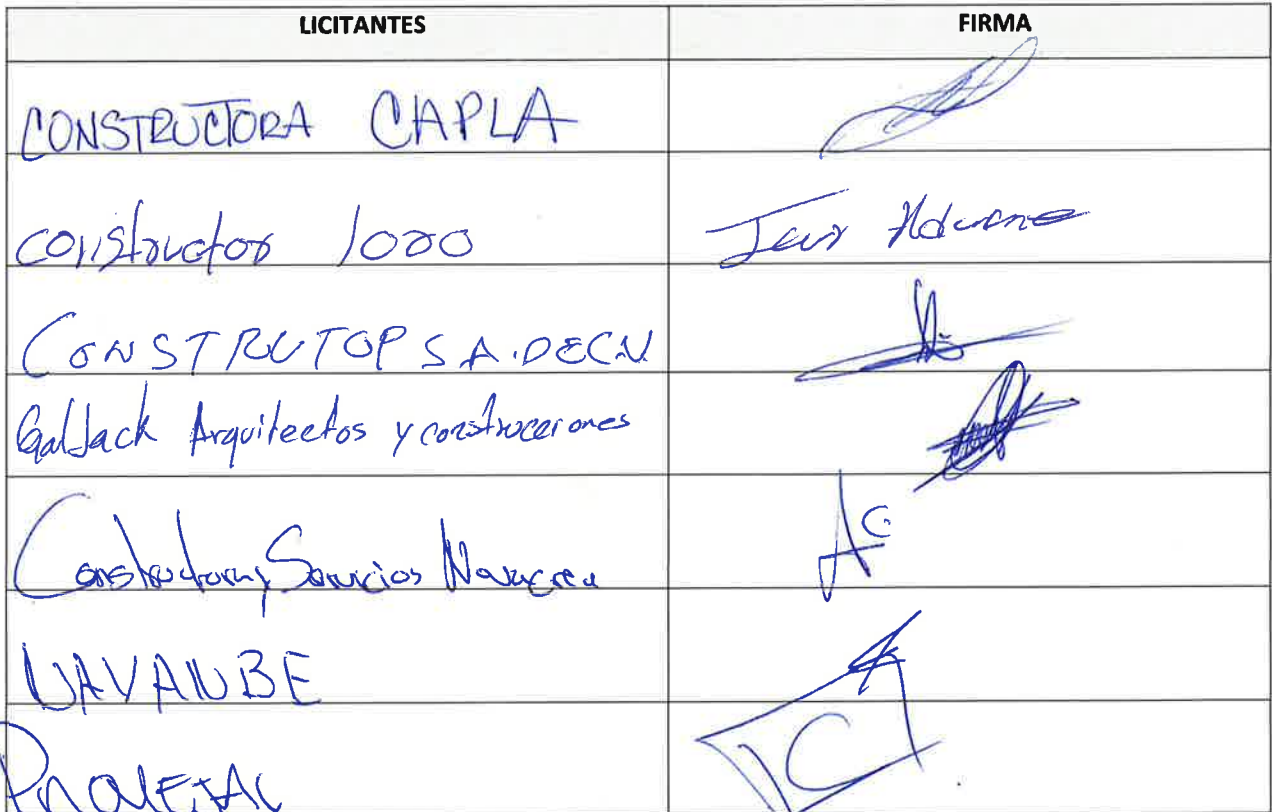 LICITANTES FIRMA
CONSTRUCTORA CAPLA
constructor 1000
CONSTRUTOP S A. DE CV
GalJack Arquitectos y construcciones
Constructora y Servicios
NAVANBE